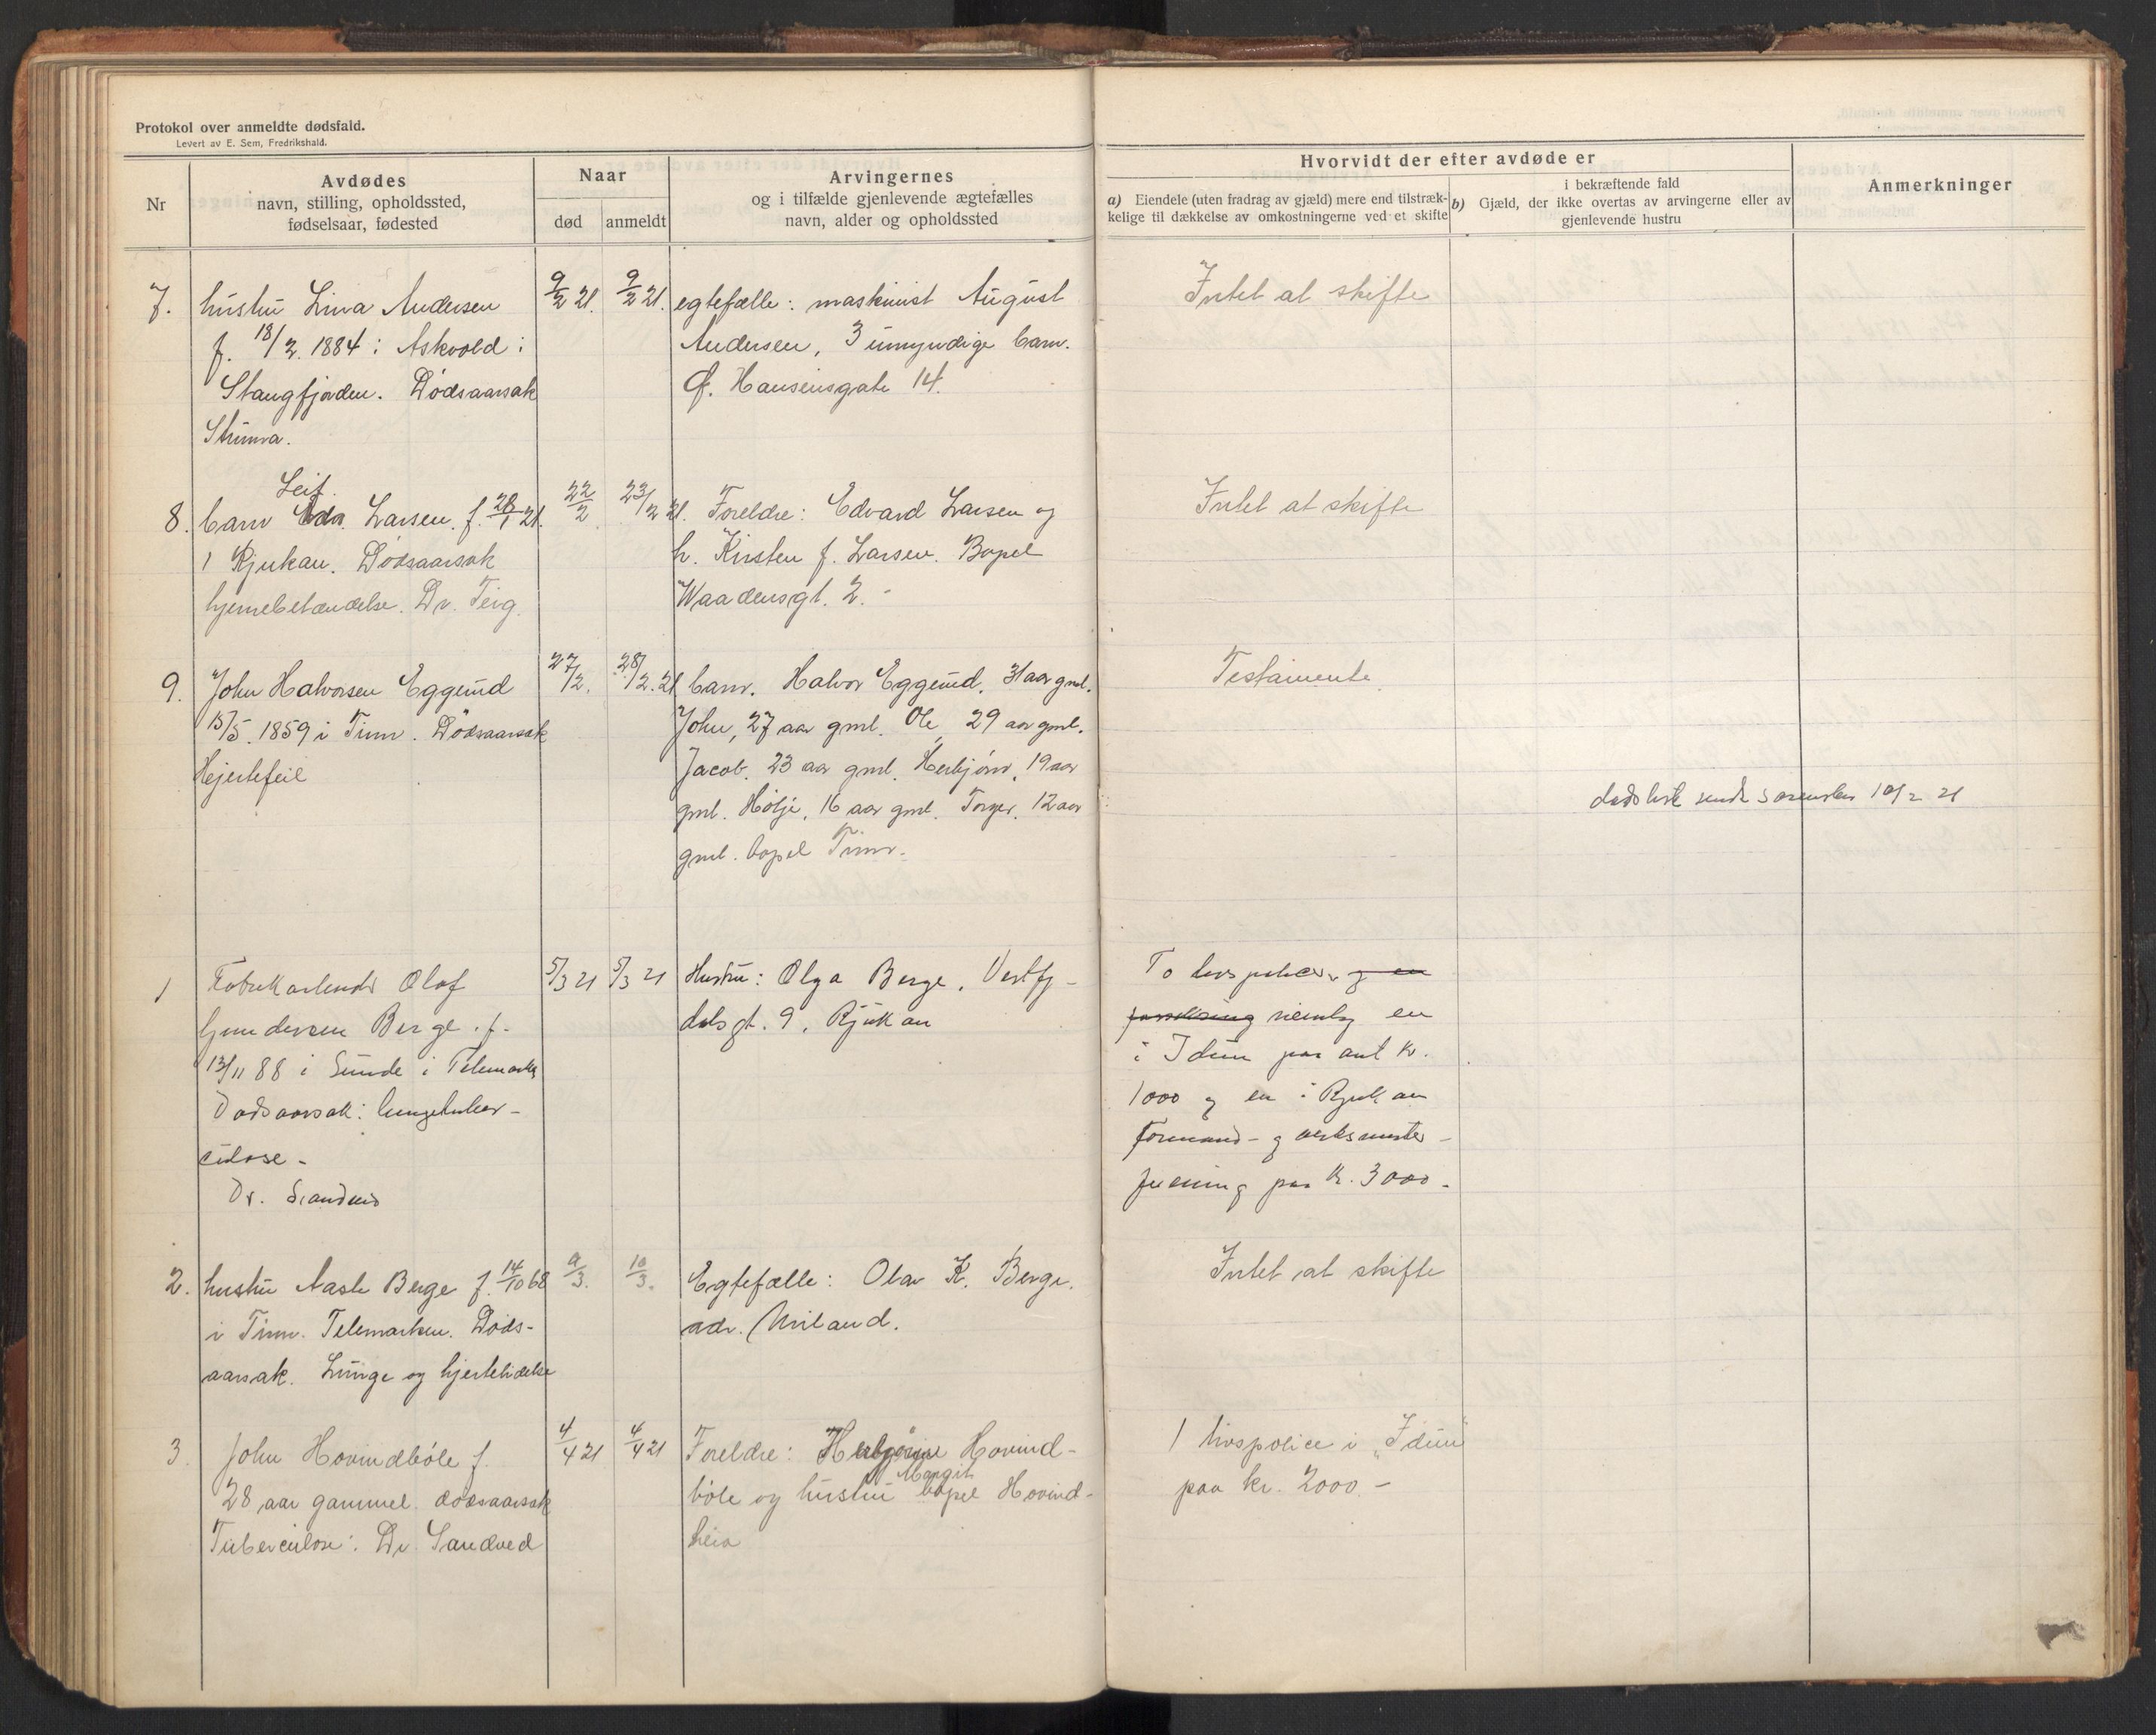 Protokol over anmeldte dødsfald.
Levert av E. Sem, Fredrikshald.
Nr
Avdødes
navn, stilling, opholdssted,
fødselsaar, fødested
Naar
død
anmeldt
Arvingernes
og i tilfælde gjenlevende ægtefælles
navn, alder og opholdssted
Hvorvidt der efter avdøde er
a) Eiendele (uten fradrag av gjæld) mere end tilstræk-
kelige til dækkelse av omkostningerne ved et skifte
i bekræftende fald
b) Gjæld, der ikke overtas av arvingerne eller av
gjenlevende hustru
Anmerkninger
7. hustru Lina Andersen
f. 18/2. 1884 i Askvold i
Stangfjorden. Dødsaarsak
Struma.
9/2 21. 9/2 21.
egtefælle: maskinist August
Andersen, 3 umyndige barn.
Q. Hansensgate 14.
Intet at skifte
Leif
8. barn Larsen. f. 28/1 21.
i Rjukan. Dødsaarsak
hjernebetændelse. Dr. Teig.
22/2 23/2 21.
Foreldre: Edvard Larsen og
h. Kirsten f. Larsen. Bopel
Waadensgt. 2.-
Intet at skifte
9. John Halvorsen Eggerud
15/5. 1859 i Tinn. Dødsaarsak
Hejertefeil
27/2. 28/2. 21
barn. Halvor Eggerud, 31 aar gml.
John, 27 aar gml. Ole, 29 aar gml.
Jacob. 23 aar gml. Herbjörn, 19 aar
gml. Hölje, 16 aar gml. Torger, 12 aar
gml. bopel Tinn.
Testamente
sendt sorenskr 10/2 21
1 Fabrikarbeider Olaf
Gundersen Berge. f.
13/11 88 i Sunde i Telemark
Dødsaarsak: lungetuber-
culose-
Dr. Sandved
5/3 21 5/3 21
Hustru: Olga Berge, Vestfj-
dalsgt. 9, Rjukan
To livspolicer, og en
forsikring nemlig en
i Idun paa ant kr.
1000 og en i Rjukan
Formand- og verksmester-
forening paa kr. 3000-
2. hustru Aaste Berge f. 14/10 68
i Tinn. Telemarken. Døds-
aarsak. Lunge og hjertelidelse
9/3. 10/3.
Egtefælle: Olav K. Berge.
adr. Miland.
Intet at skifte
3. John Hovindböle f.
28 aar gammel. dødsaarsak
Tuberculose. Dr. Sandved
4/4 21 4/4 21
Foreldre: Hovind-
Margit
böle og hustru bopel Hovind-
heia
1 livspolice i „Idun"
paa kr. 2000.-